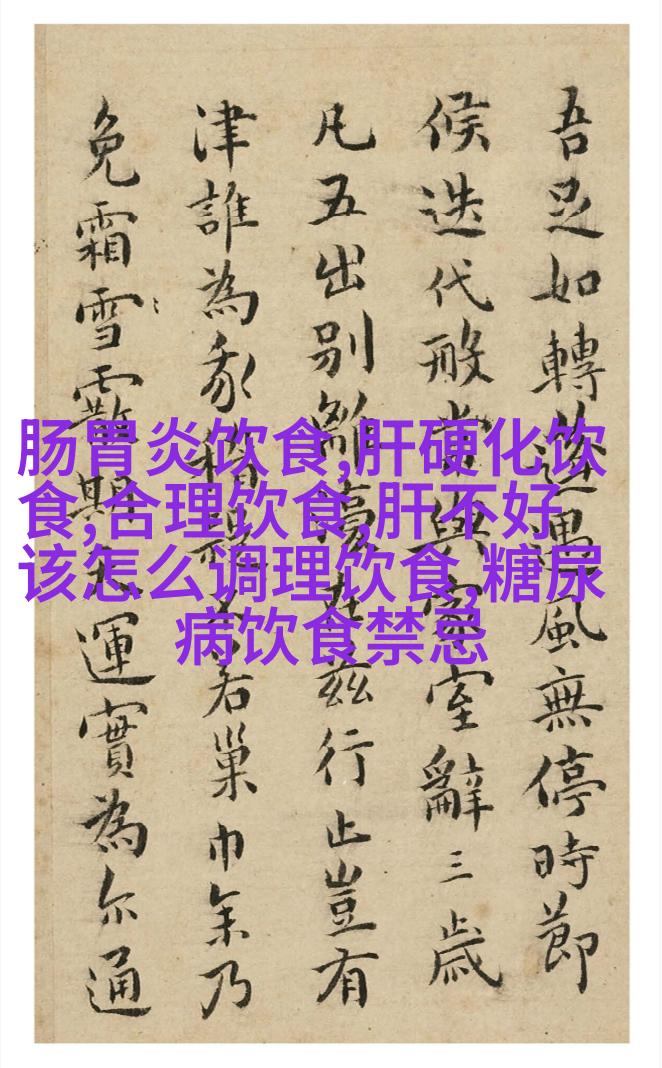 肠胃炎饮食,肝硬化饮
食,合理饮食,肝不好
该怎么调理饮食,糖尿
病饮食禁忌
吾足如轉蓬遇風無停時節
候迭代當與家室辭三歲
凡五出別離在茲行止豈有
津誰為若巢巾乃
免霜雪運實為尔通